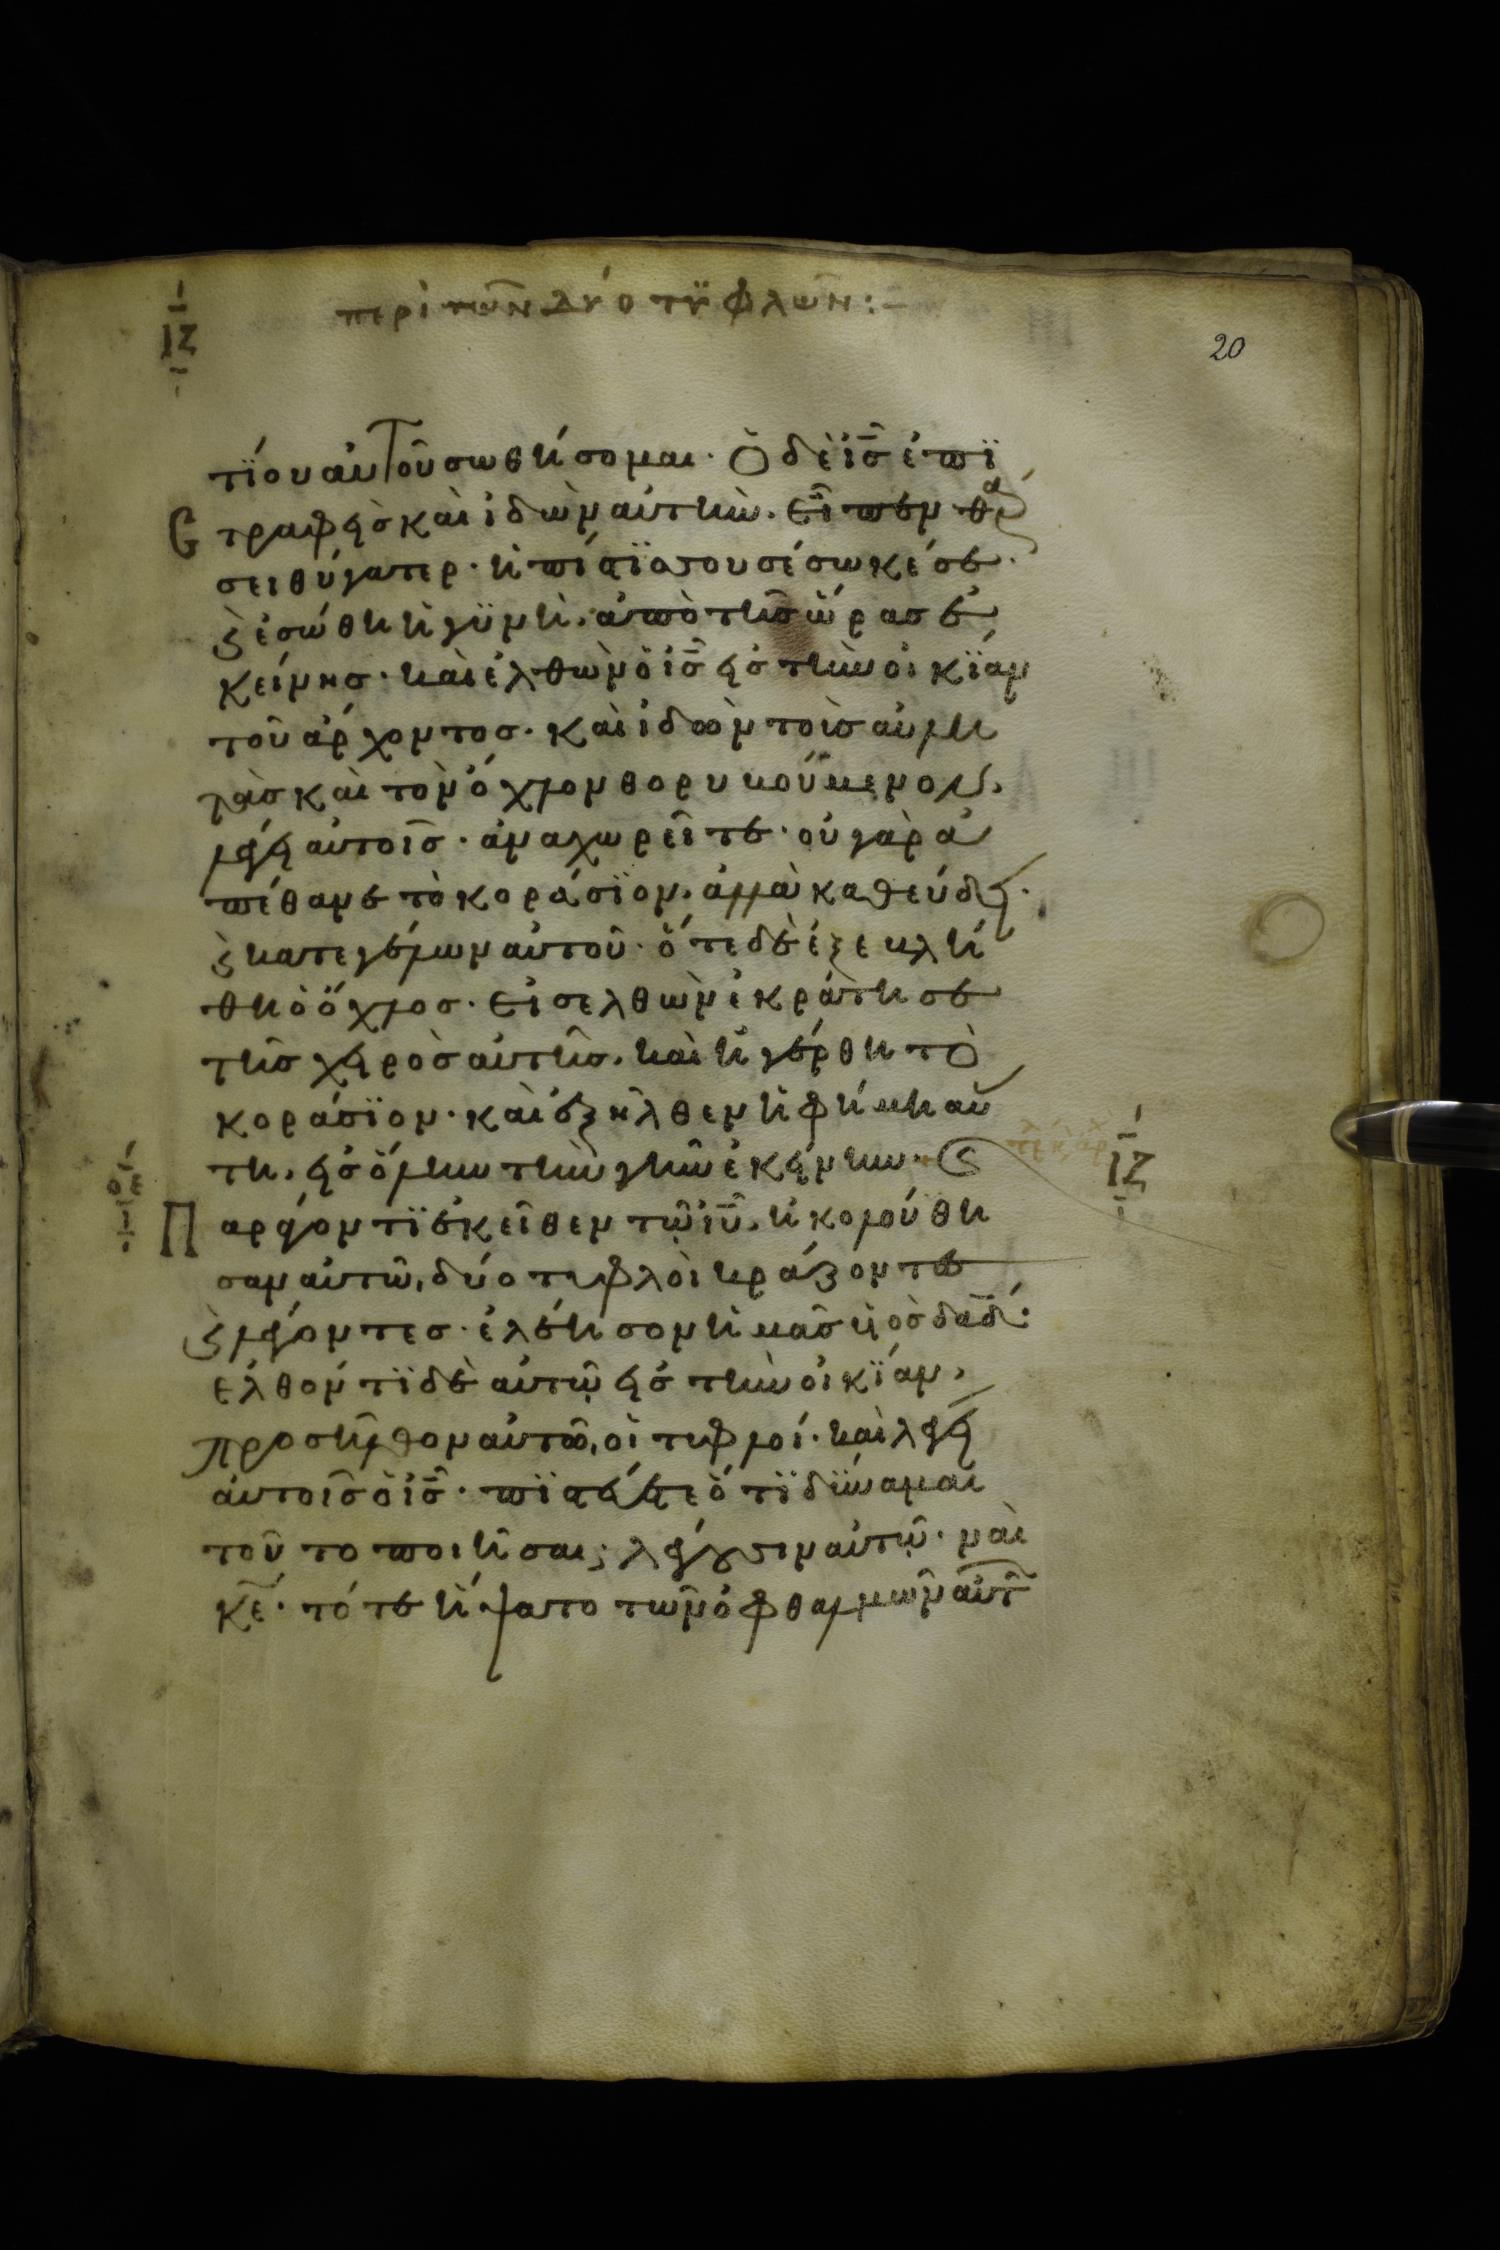 ΙΖ
περὶ τῶν δύο τϋφλῶν:–
20
τΐου αὐτοῦ σωθήσομαι· Ὁ δὲ ἰς ἐπϊ
στραφεὶς καὶ ἰδὼν αὐτὴν· εἶπεν θάρ
σει θύγατερ· ἡ πίστϊς σου σέσωκέ σε·
ϗ ἐσώθη ἡ γϋνὴ· ἀπὸ τῆς ὥρας ἐ
κείνης· καὶ ἐλθὼν ὁ ἰς εἰς τὴν οἰκΐαν
τοῦ ἄρχοντος· καὶ ἰδὼν τοὺς αὐλη
τὰς καὶ τὸν ὄχλον θορυβούμενον,
λέγει αὐτοῖς· ἀναχωρεῖτε· οὐ γὰρ ἀ
πέθανε τὸ κοράσϊον, ἀλλὰ καθεύδει·
ϗ κατεγέλων αὐτοῦ· ὅτε δὲ ἐξεβλή
θη ὁ ὄχλος· εἰσελθὼν ἐκράτησε
τῆς χειρὸς αὐτῆς, καὶ ἠγέρθη τὸ
κοράσϊον· καὶ ἐξῆλθεν ἡ φήμη αὕ
τη, εἰς ὅλην τὴν γῆν ἐκείνην·
ΙΖ
Παράγοντϊ ἐκεῖθεν τῷ ἰῦ, ἠκολούθη
σαν αὐτῶ, δύο τυφλοὶ κράζοντες
ϗ λέγοντες· ἐλέησον ἡμᾶς υἱὸς δαδ·
ἐλθόντϊ δὲ αὐτῷ εἰς τὴν οἰκΐαν,
προσῆλθον αὐτῶ, οἱ τυφλοί· καὶ λέγει
αὐτοῖς ὁ ἰς· πϊστεύετε ὅτϊ δΰναμαι
τοῦτο ποιῆσαι; λέγουσιν αὐτῷ· ναὶ
κε· τότε ἥψατο τῶν ὀφθαλμῶν αὐτ